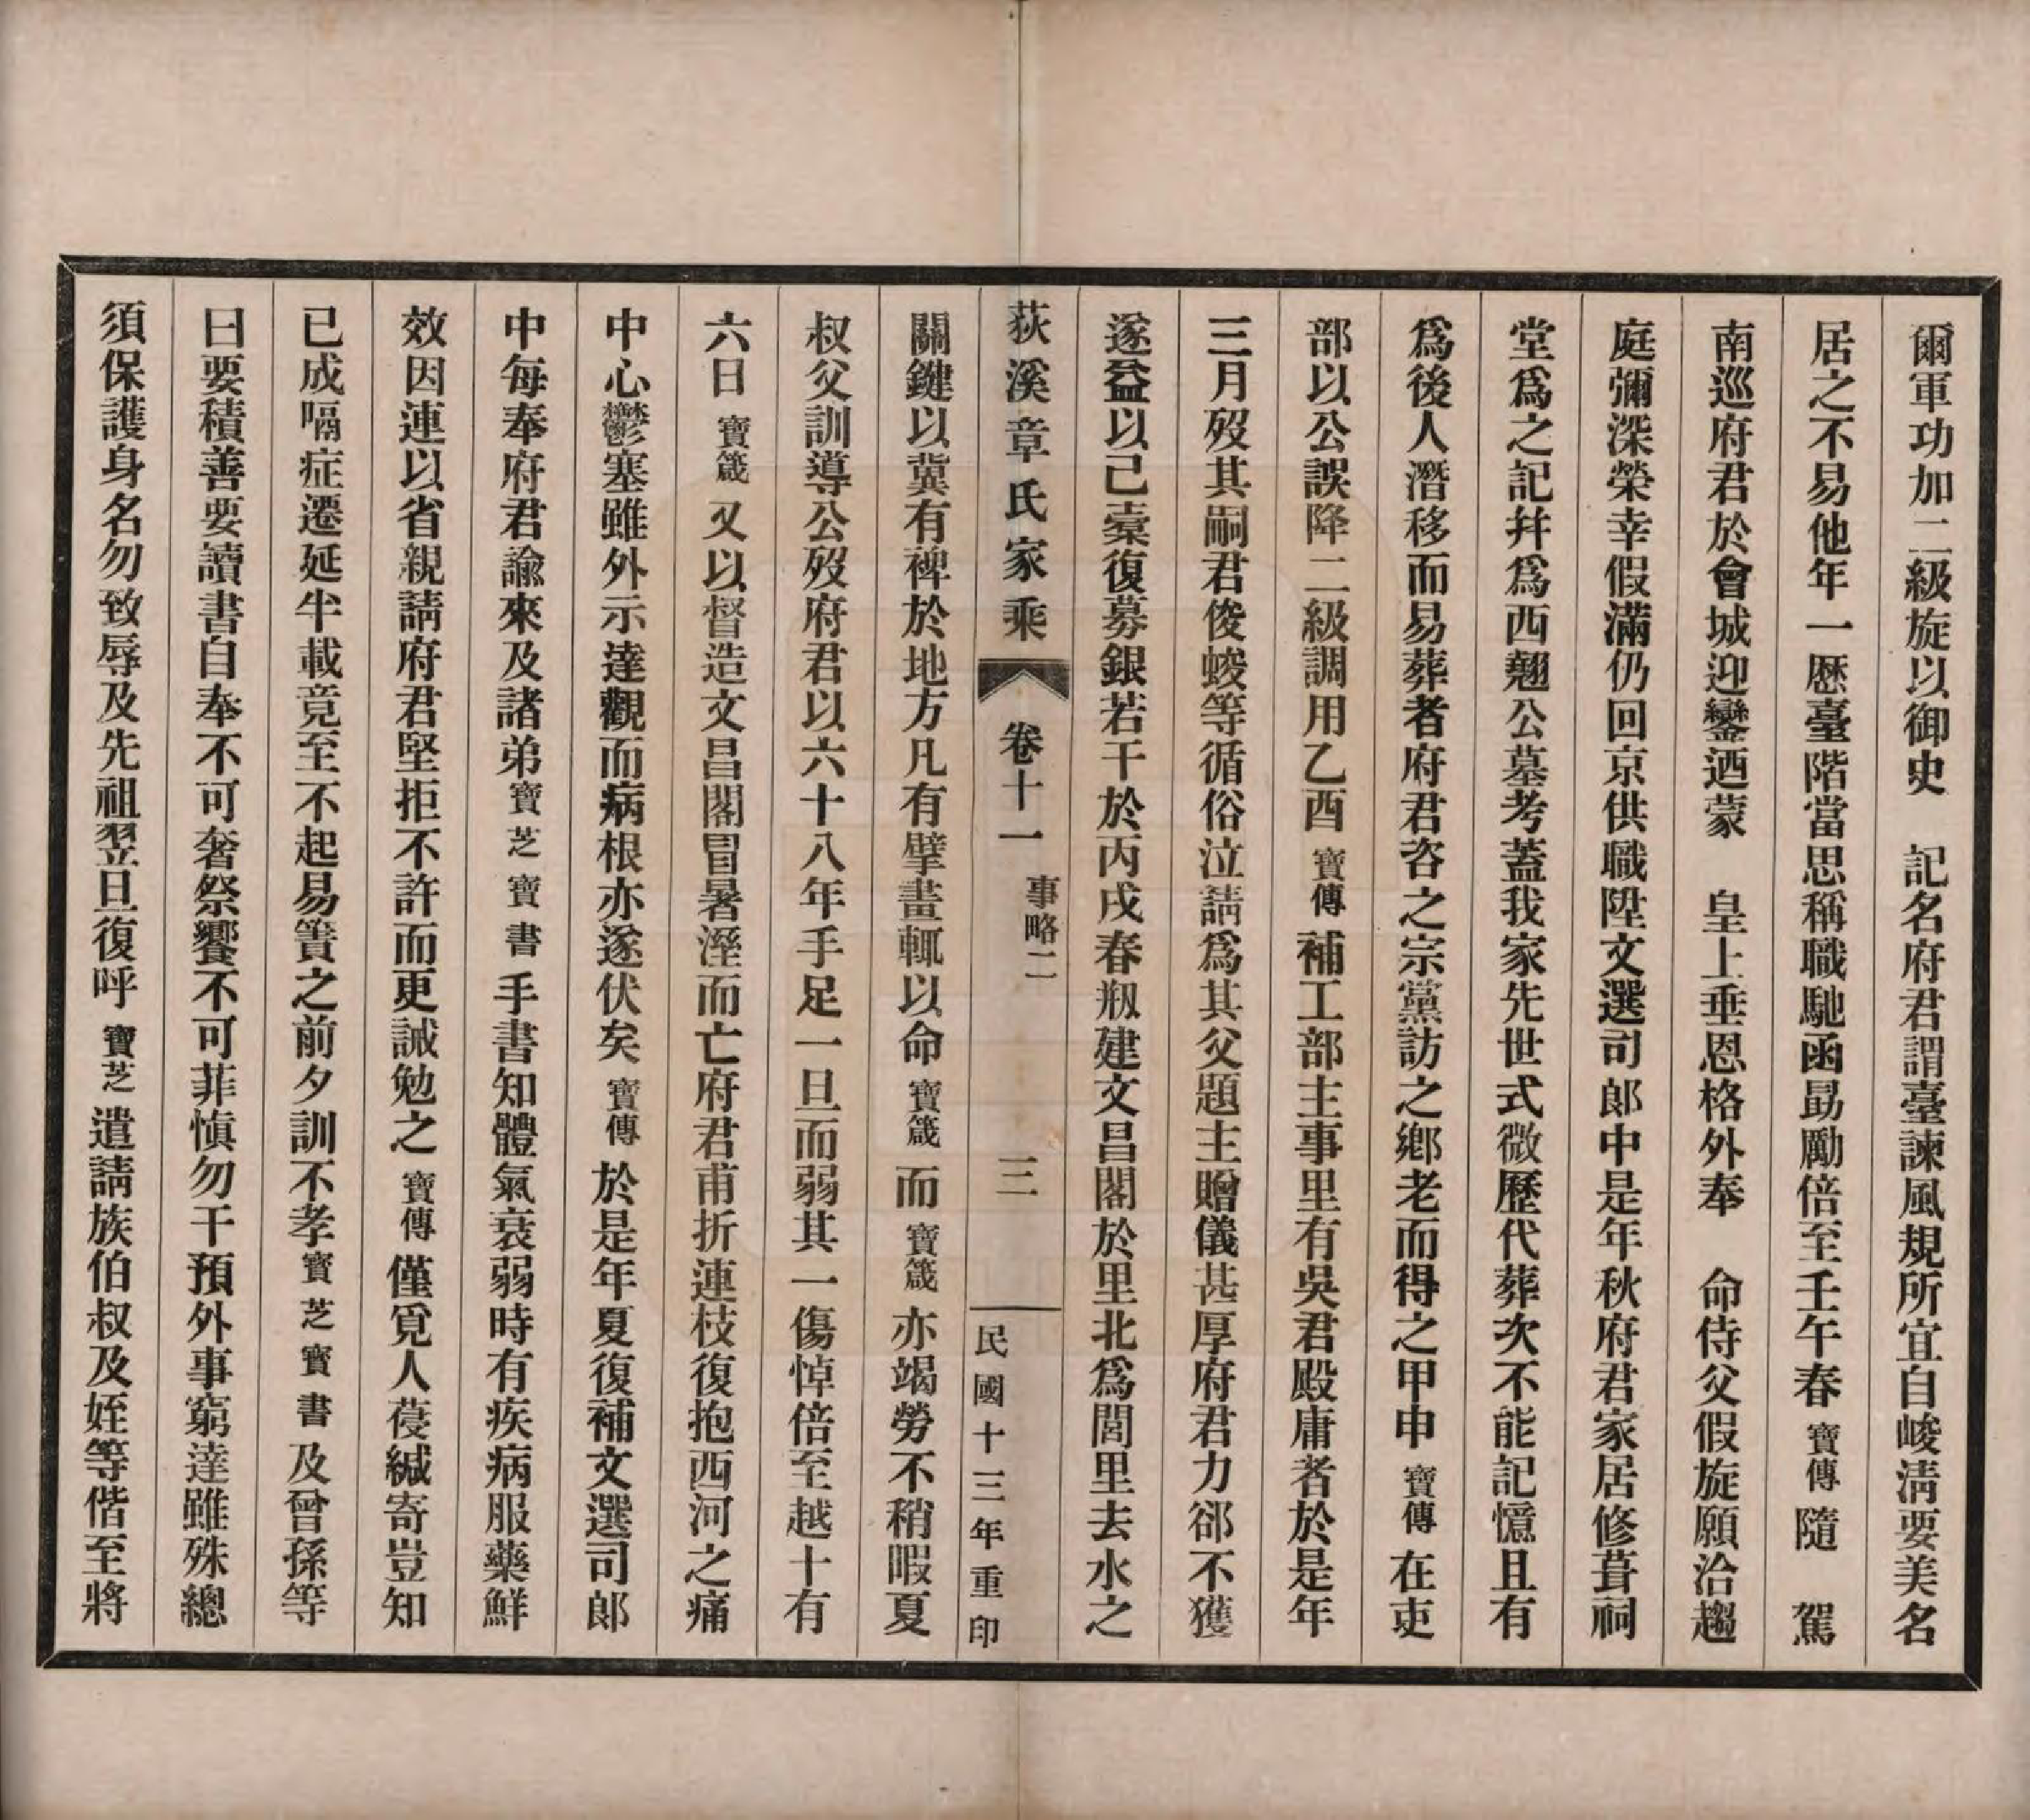 爾軍功加二級旋以御史　記名府君謂臺諫風規所宜自峻淸要美名
居之不易他年一歷臺階當思稱職馳函勗勵倍至壬午春寶傳隨　駕
南巡府君於會城迎鑾迺蒙　皇上垂恩格外奉　命侍父假旋願洽趨
庭彌深榮幸假滿仍回京供職陞文選司郞中是年秋府君家居修葺祠
堂爲之記幷爲西翹公墓考蓋我家先世式微歷代葬次不能記憶且有
爲後人潛移而易葬者府君咨之宗黨訪之鄕老而得之甲申寶傳在吏
部以公誤降二級調用乙酉寶傳補工部主事里有吳君殿庸者於是年
三月歿其嗣君俊蛟等循俗泣請爲其父題主贈儀甚厚府君力郤不獲
遂益以己橐復募銀若干於丙戌春剏建文昌閣於里北爲閭里去水之
荻溪章氏家乘　卷十一　事略二　三　民國十三年重印
關鍵以冀有裨於地方凡有擘畫輒以命寶箴而寶箴亦竭勞不稍暇夏
叔父訓導公歿府君以六十八年手足一旦而弱其一傷悼倍至越十有
六日寶箴又以督造文昌閣冒暑溼而亡府君甫折連枝復抱西河之痛
中心鬱塞雖外示達觀而病根亦遂伏矣寶傳於是年夏復補文選司郞
中每奉府君諭來及諸弟寶芝寶書手書知體氣衰弱時有疾病服藥鮮
效因連以省親請府君堅拒不許而更誡勉之寶傳僅覓人葠緘寄豈知
已成嗝症遷延半載竟至不起易簀之前夕訓不孝寶芝寶書及曾孫等
曰要積善要讀書自奉不可奢祭饗不可菲愼勿干預外事窮達雖殊總
須保護身名勿致辱及先祖翌旦復呼寶芝遣請族伯叔及姪等偕至將